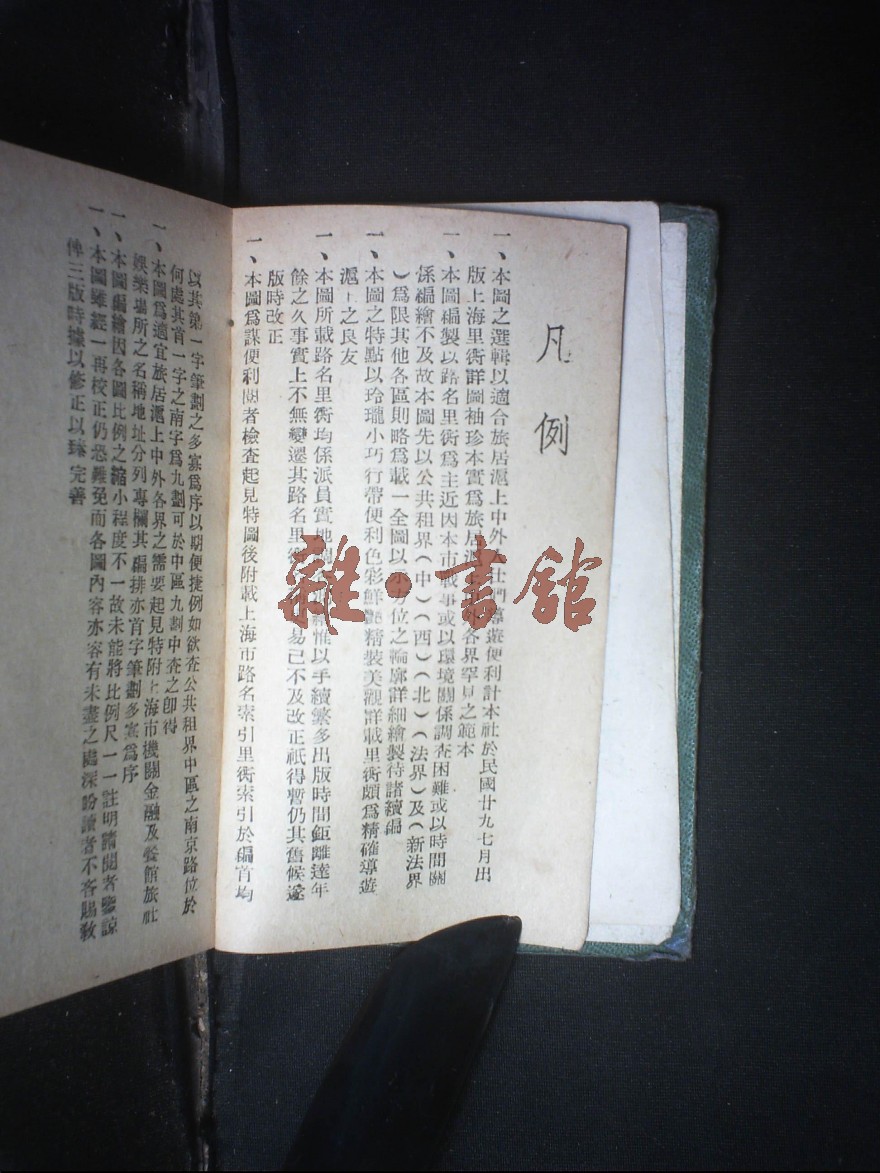 凡例
一、本圖之選輯以適合旅居滬上中外人士們導遊便利計本社於民國廿九七月出
版上海里衖詳圖袖珍本實爲旅居滬上中外各界罕見之範本
一、本圖編製以路名里衖爲主近因本市戰事或以環境關係調查困難或以時間關
係編繪不及故本圖先以公共租界(中)(西)(北)(法界)及(新法界
)爲限其他各區則略爲載一全圖以示方位之輪廓詳細繪製待諸續編
一、本圖之特點以玲瓏小巧行帶便利色彩鮮艷精裝美觀詳載里衖頗爲精確導遊
滬上之良友
一、本圖所載路名里衖均係派員實地惟以手續繁多出版時間鉅離達年
餘之久事實上不無變遷其路名里易已不及改正祇得暫仍其舊候遂
版時改正
一、本圖爲謀便利閱者檢查起見特圖後附載上海市路名索引里衖索引於編首均
以其第一字筆劃之多寡爲序以期便捷例如欲查公共租界中區之南京路位於
何處其首一字之南字爲九劃可於中區九劃中查之卽得
一、本圖爲適宜旅居滬上中外各界之需要起見特附上海市機關金融及餐館旅社
娛樂場所之名稱地址分列專欄其編排亦首字筆劃多寡爲序
一、本圖編繪因各圖比例之縮小程度不一故未能將比例尺一一註明請閱者鑒諒
一、本圖雖經一再校正仍恐難免而各圖內容亦容有未盡之處深盼讀者不吝賜教
俾三版時據以修正以臻完善
雜·書館